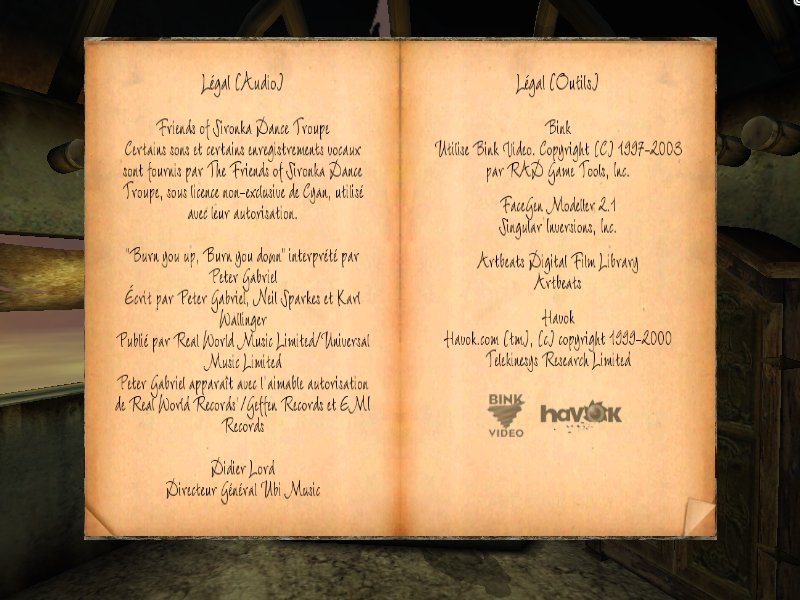 Légal (Audio)
Friends of Sironka Dance Troupe
Certains sons et certains enregistrements vocaux
sont fournis par The Friends of Sironka Dance
Troupe, sous licence non-exclusive de Cyan, utilisé
avec leur autorisation.
"Burn you up, Burn you down" interprété par
Peter Gabriel
Écrit par Peter Gabriel, Neil Sparkes et Karl
Wallinger
Publié par Real World Music Limited/Universal
Music Limited
Peter Gabriel apparaît avec l'aimable autorisation
de Real World Records'/Geffen Records et EMI
Records
Didier Lord
Directeur Général Ubi Music
Légal (Outils)
Bink
Utilise Bink Video. Copyright (C) 1997-2003
par RAD Game Tools, Inc.
FaceGen Modeller 2.1
Singular Inversions, Inc.
Artbeats Digital Film Library
Artbeats
Havok
Havok.com (tm), (c) copyright 1999-2000
Telekinesys Research Limited
BINK
VIDEO
havok